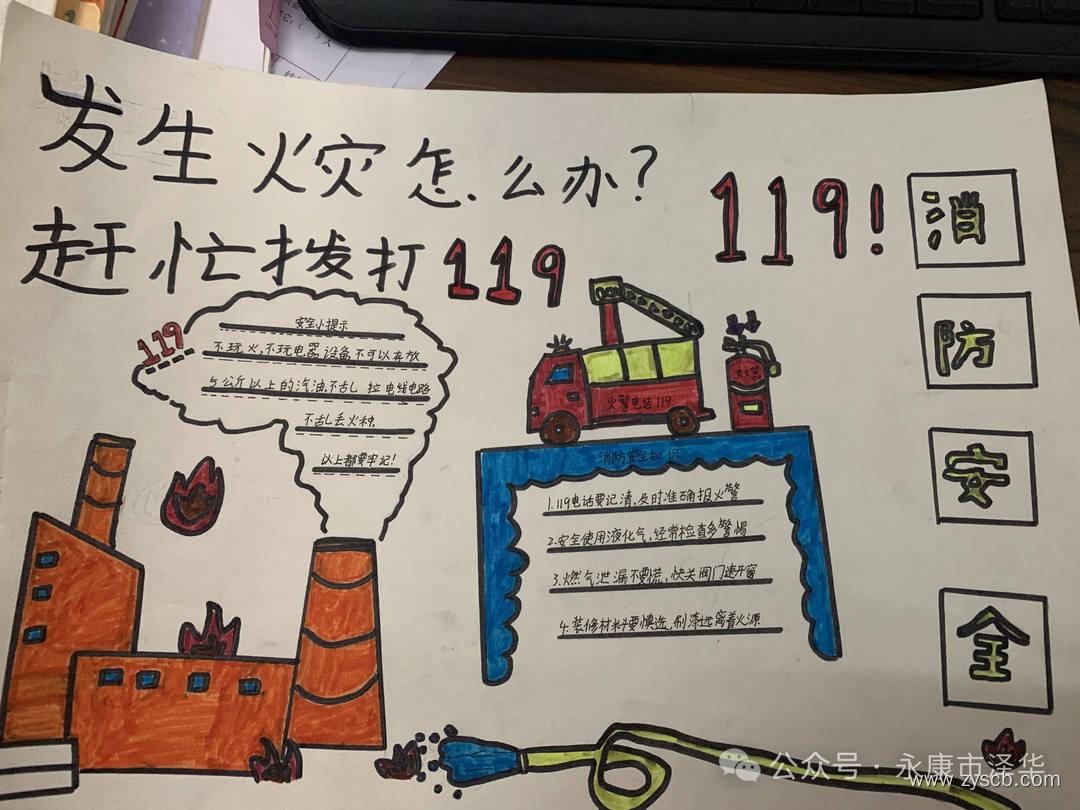 发生火灾怎么办?
赶忙拨打119
119!
消
防
安
全
119
安全小提示
不玩火,不玩电器设备,不可以存放
5公斤以上的汽油.不乱拉电线电路
不乱丢火种.
以上都要牢记!
火警电话119
灭火器
消防安全知识
1.119电话要记清,及时准确报火警
2.安全使用液化气,经常检查多警惕
3.燃气泄漏不要慌,快关阀门速开窗
4.装修材料要慎选,刷漆远离着火源
公众号·永康市泽华
www.zyscb.com